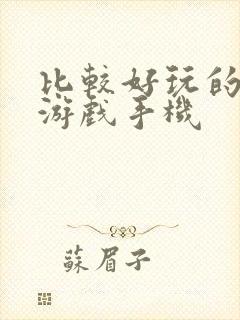 比較好玩的
游戲手機
蘇眉子